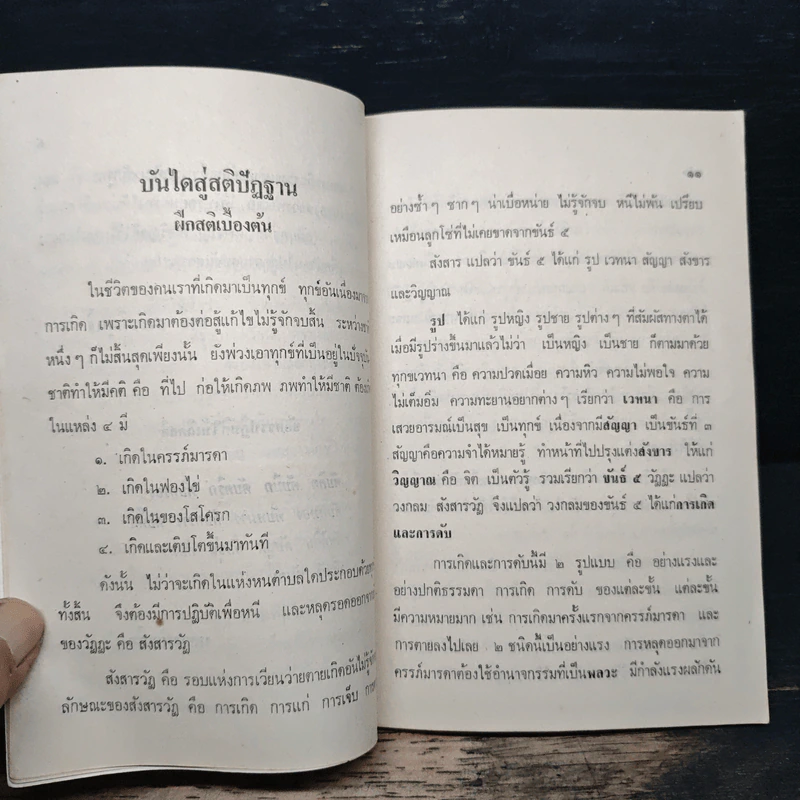 บันไดสู่สติปัฏฐาน
ฝึกสติเบื้องต้น
ในชีวิตของคนเราที่เกิดมาเป็นทุกข์ ทุกข์อันเนื่องมาจาก
การเกิด เพราะเกิดมาต้องต่อสู้แก้ไขไม่รู้จักจบสิ้น ระหว่าง
หนึ่งๆ ก็ไม่สิ้นสุดเพียงนั้น ยังพ่วงเอาทุกข์ที่เป็นอยู่ในปัจจุบัน
ชาติทำให้มีคติ คือ ที่ไป ก่อให้เกิดภพ ภพทำให้มีชาติ
ในแหล่ง ๔ มี
๑. เกิดในครรภ์มารดา
๒. เกิดในฟองไข่
๓. เกิดในของโสโครก
๔. เกิดและเติบโตขึ้นมาทันที
ดังนั้น ไม่ว่าจะเกิดในแห่งหนตำบลใดประกอบด้วย
ทั้งสิ้น จึงต้องมีการปฏิบัติเพื่อหนี และหลุดรอดออก
ของวัฏฏะ คือ สังสารวัฏ
สังสารวัฏ คือ รอบแห่งการเวียนว่ายตายเกิดอันไม่รู้
ลักษณะของสังสารวัฏ คือ การเกิด การแก่ การเจ็บ
๑๑
อย่างซ้ำๆ ซากๆ น่าเบื่อหน่าย ไม่รู้จักจบ หนีไม่พ้น เปรียบ
เหมือนลูกโซ่ที่ไม่เคยขาดจากขันธ์ ๕
สังสาร แปลว่า ขันธ์ ๕ ได้แก่ รูป เวทนา สัญญา สังขาร
และวิญญาณ
รูป ได้แก่ รูปหญิง รูปชาย รูปต่างๆ ที่สัมผัสทางตาได้
เมื่อมีรูปร่างขึ้นมาแล้วไม่ว่า เป็นหญิง เป็นชาย ก็ตามมาด้วย
ทุกขเวทนา คือ ความปวดเมื่อย ความหิว ความไม่พอใจ ความ
ไม่เต็มอิ่ม ความทะยานอยากต่างๆ เรียกว่า เวทนา คือ การ
เสวยอารมณ์เป็นสุข เป็นทุกข์ เนื่องจากมีสัญญา เป็นขันธ์ที่ ๓
สัญญาคือความจำได้หมายรู้ ทำหน้าที่ไปปรุงแต่งสังขาร ให้แก่
วิญญาณ คือ จิต เป็นตัวรู้ รวมเรียกว่า ขันธ์ ๕ วัฏฏะ แปลว่า
วงกลม สังสารวัฏ จึงแปลว่า วงกลมของขันธ์ ๕ ได้แก่การเกิด
และการดับ
การเกิดและการดับนี้มี ๒ รูปแบบ คือ อย่างแรงและ
อย่างปกติธรรมดา การเกิด การดับ ของแต่ละขั้น แต่ละขั้น
มีความหมายมาก เช่น การเกิดมาครั้งแรกจากครรภ์มารดา และ
การตายลงไปเลย ๒ ชนิดนี้เป็นอย่างแรง การหลุดออกมาจาก
ครรภ์มารดาต้องใช้อำนาจกรรมที่เป็นพลวะ มีกำลังแรงผลักดัน